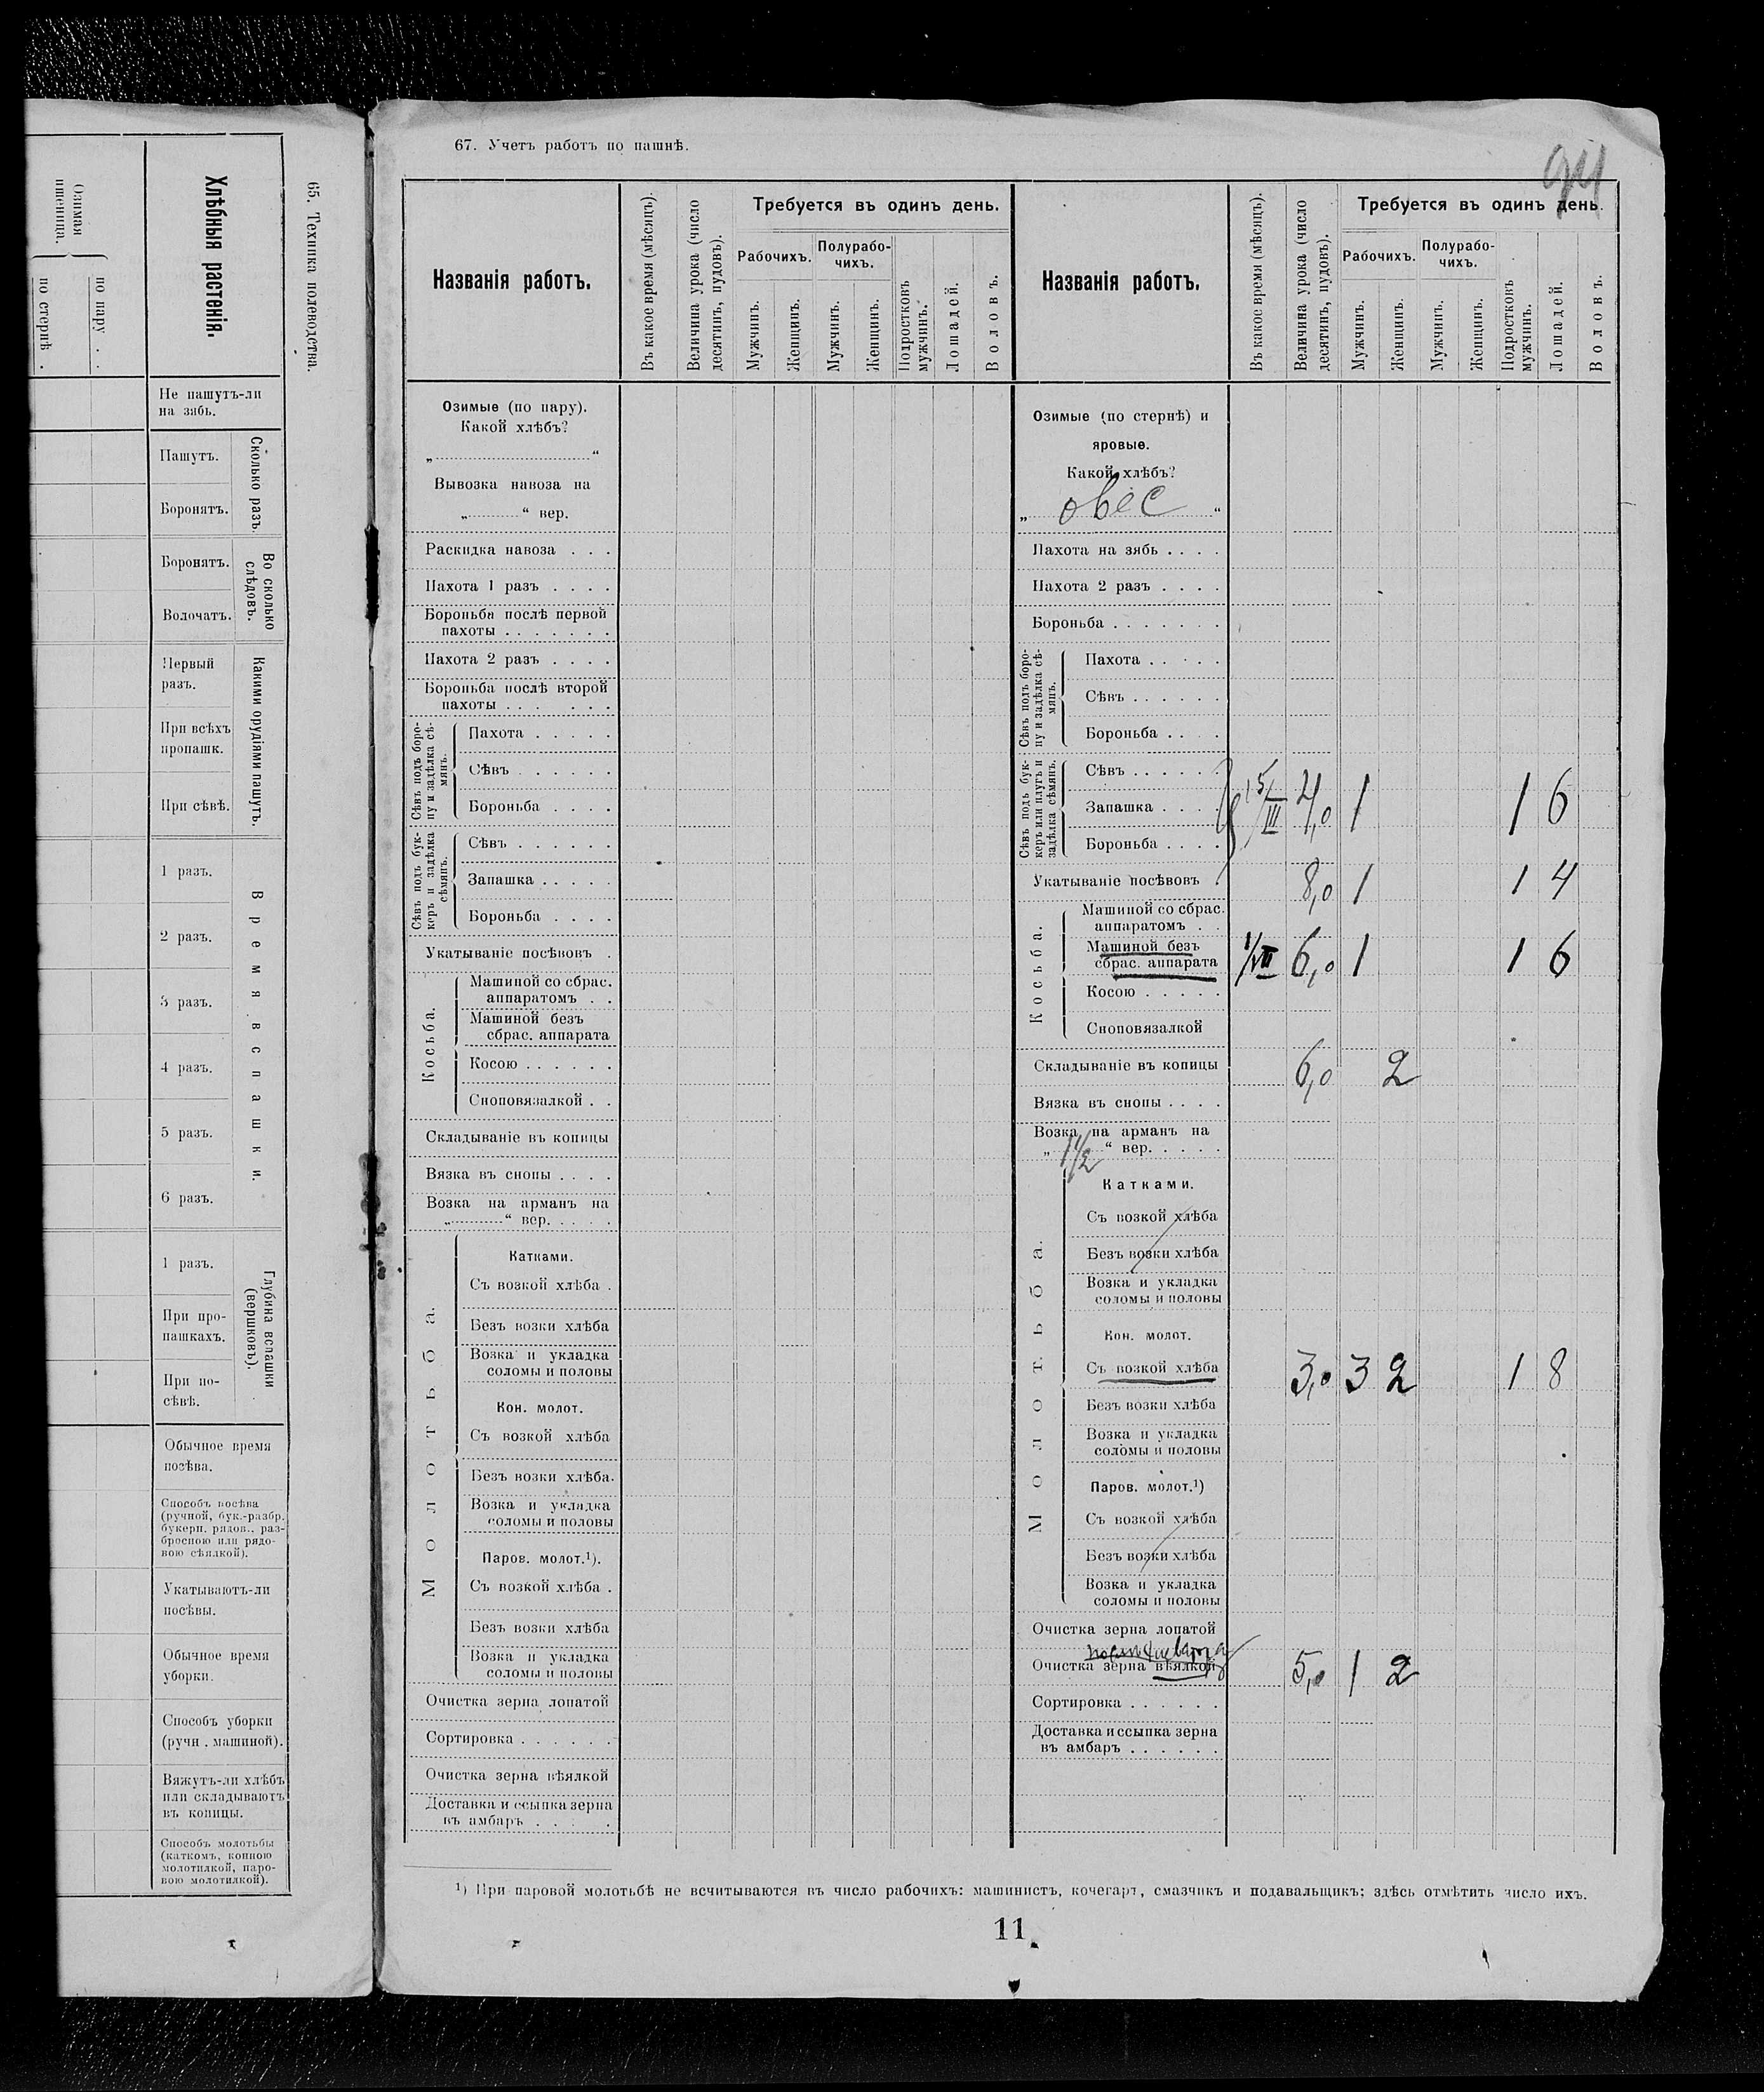 Озимая пшеница.
по пару . .
по стернѣ .
Хлѣбныя растенія.
65. Техника полеводства.
Не пашутъ-ли
на зябь.
Сколько разъ.
Пашутъ.
Боронятъ.
Во сколько слѣдовъ.
Боронятъ.
Волочатъ.
Какими орудіями пашутъ.
Первый
разъ.
При всѣхъ
пропашк.
При сѣвѣ.
Время вспашки.
1 разъ.
2 разъ.
3 разъ.
4 разъ.
5 разъ.
6 разъ.
Глубина вспашки (вершковъ).
1 разъ.
При про-
пашкахъ.
При по-
сѣвѣ.
Обычное время
посѣва.
Способъ посѣва
(ручной, бук.-разбр.
букерп. рядов., раз-
бросною или рядо-
вою сѣялкой).
Укатываютъ-ли
посѣвы.
Обычное время
уборки.
Способъ уборки
(ручн . машиной).
Вяжутъ-ли хлѣбъ
или складываютъ
въ копицы.
Способъ молотьбы
(каткомъ, конною
молотилкой, паро-
вою молотилкой).
67. Учетъ работъ по пашнѣ.
94
Названія работъ.
Въ какое время (мѣсяцъ).
Величина урока (число десятинъ, пудовъ).
Требуется въ одинъ день.
Рабочихъ.
Полурабо-
чихъ.
Мужчинъ.
Женщинъ.
Мужчинъ.
Женщинъ.
Подростковъ мужчинъ.
Лошадей.
Воловъ.
Озимые (по пару).
Какой хлѣбъ?
„ “
Вывозка навоза на
„ “ вер.
Раскидка навоза . . .
Пахота 1 разъ . . . .
Бороньба послѣ первой
пахоты . . . . . . .
Пахота 2 разъ . . . .
Бороньба послѣ второй
пахоты . . . . . .
Сѣвъ подъ боро-
ну и задѣлка сѣ-
мянъ.
Пахота . . . . .
Сѣвъ . . . . . .
Бороньба . . . .
Сѣвъ подъ бук-
керъ и задѣлка
сѣмянъ.
Сѣвъ . . . . . .
Запашка . . . . .
Бороньба . . . .
Укатываніе посѣвовъ .
Косьба.
Машиной со сбрас.
аппаратомъ . .
Машиной безъ
сбрас. аппарата
Косою . . . . . .
Сноповязалкой . .
Складываніе въ копицы
Вязка въ снопы . . . .
Возка на арманъ на
„ “ вер. . . . .
Молотьба.
Катками.
Съ возкой хлѣба .
Безъ возки хлѣба
Возка и укладка
соломы и половы
Кон. молот.
Съ возкой хлѣба
Безъ возки хлѣба.
Возка и укладка
соломы и половы
Паров. молот.¹).
Съ возкой хлѣба .
Безъ возки хлѣба
Возка и укладка
соломы и половы
Очистка зерна лопатой
Сортировка . . . . . .
Очистка зерна вѣялкой
Доставка и ссыпка зерна
въ амбаръ . . . .
Названія работъ.
Въ какое время (мѣсяцъ).
Величина урока (число десятинъ, пудовъ).
Требуется въ одинъ день.
Рабочихъ.
Полурабо-
чихъ.
Мужчинъ.
Женщинъ.
Мужчинъ.
Женщинъ.
Подростковъ мужчинъ.
Лошадей.
Воловъ.
Озимые (по стернѣ) и
яровые.
Какой хлѣбъ?
„ овес “
Пахота на зябь . . . .
Пахота 2 разъ . . . .
Бороньба . . . . . . .
Сѣвъ подъ боро-
ну и задѣлка сѣ-
мянъ.
Пахота . . . . .
Сѣвъ . . . . . .
Бороньба . . . .
Сѣвъ подъ бук-
керъ или плугъ и
задѣлка сѣмянъ.
Сѣвъ . . . . . .
Запашка . . . . 15/III 4,0 1 1 6
Бороньба . . . .
Укатываніе посѣвовъ 8,0 1 1 4
Косьба.
Машиной со сбрас.
аппаратомъ . .
Машиной безъ
сбрас. аппарата 1/VII 6,0 1 1 6
Косою . . . . .
Сноповязалкой
Складываніе въ копицы 6,0 2
Вязка въ снопы . . . .
Возка на арманъ на
„ 1½ “ вер. . . . .
Молотьба.
Катками.
Съ возкой хлѣба
Безъ возки хлѣба
Возка и укладка
соломы и половы
Кон. молот.
Съ возкой хлѣба 3,0 3 2 1 8
Безъ возки хлѣба
Возка и укладка
соломы и половы
Паров. молот.¹)
Съ возкой хлѣба
Безъ возки хлѣба
Возка и укладка
соломы и половы
Очистка зерна лопатой
Очистка зерна вѣялкой 5,0 1 2
Сортировка . . . . . .
Доставка и ссыпка зерна
въ амбаръ . . . . . .
¹) При паровой молотьбѣ не всчитываются въ число рабочихъ: машинистъ, кочегаръ, смазчикъ и подавальщикъ; здѣсь отмѣтить число ихъ.
11